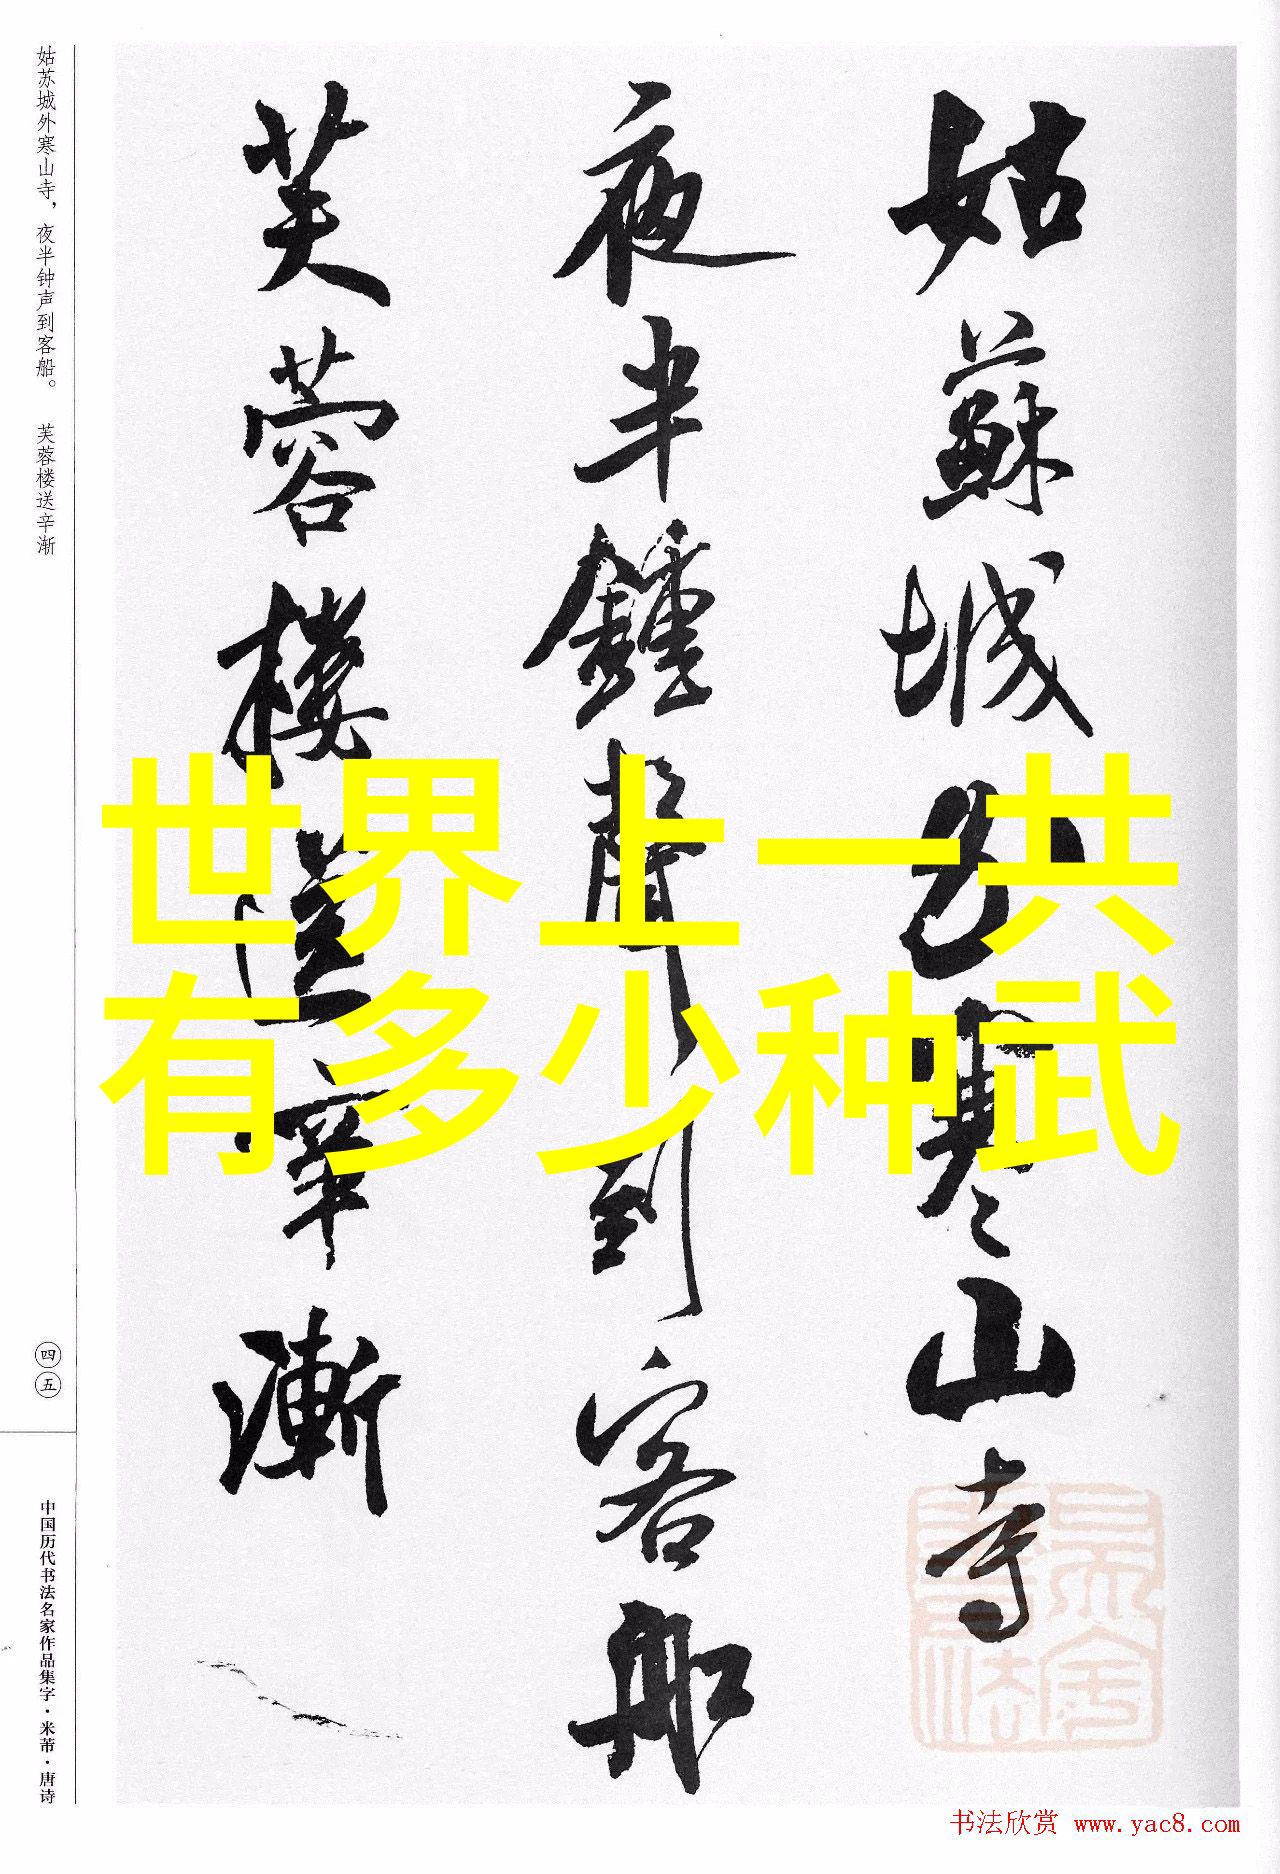 姑苏城外寒山寺，夜半钟声到客船。 芙蓉楼送辛渐
姑蘇城外寒山寺
夜半鍾聲到客船
芙蓉樓送辛漸
世界上一共
有多少种武
四五
中国历代书法名家作品集字·米芾·唐诗
书法欣赏 www.yac8.com